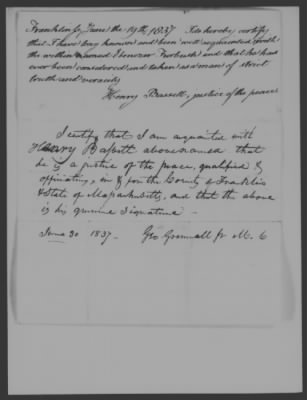 Franklin ss, June the 19th, 1837 I do hereby certify
that I have long known and been well acquainted with
the within named Ebenezer Forbush and that he has
ever been considered and taken as a man of strict
truth and veracity
Henry Bassett, justice of the peace
I certify that I am acquainted with
Henry Bassett abovenamed that
he is a justice of the peace, qualified &
officiating, in & for the County of Franklin
& State of Massachusetts, and that the above
is his genuine Signature -
June 30 1837 - Geo Grennell jr M. C